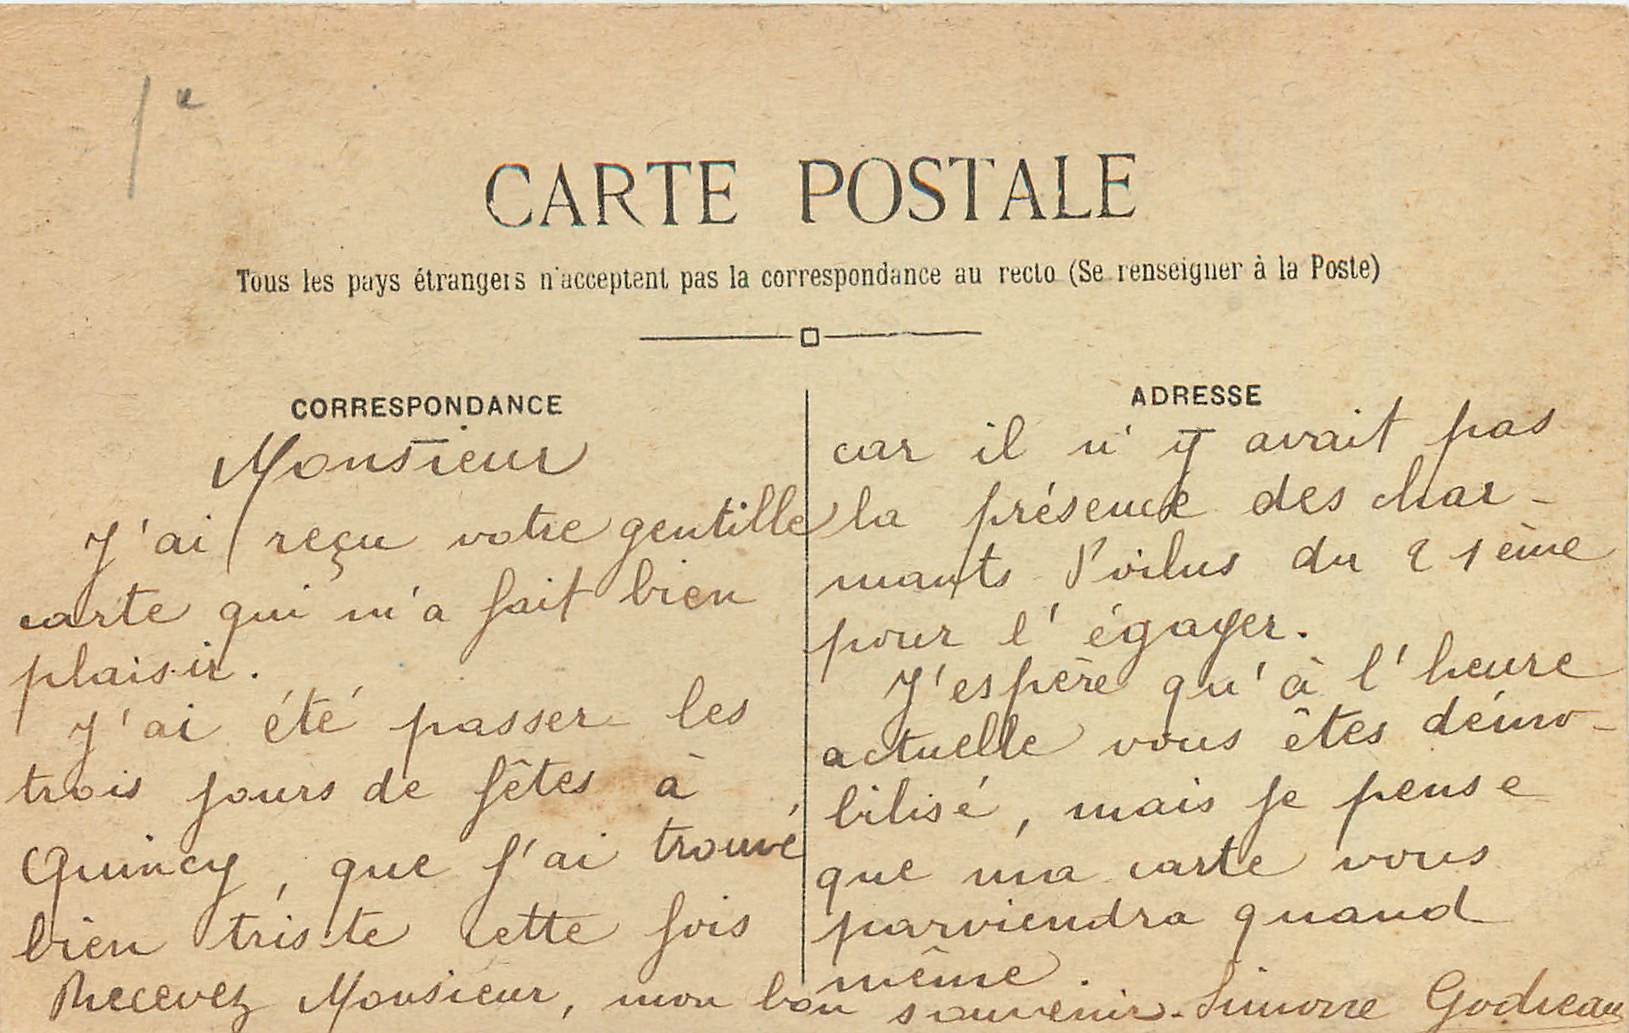 1e
CARTE POSTALE
Tous les pays étrangers n'acceptent pas la correspondance au recto (Se renseigner à la Poste)
CORRESPONDANCE
Monsieur
J'ai reçu votre gentille
carte qui m'a fait bien
plaisir.
J'ai été passer les
trois jours de fêtes à
Quincy, que j'ai trouvé
bien triste cette fois
ADRESSE
car il n'y avait pas
la présence des char-
mants Poilus du 21ème
pour l'égayer.
J'espère qu'à l'heure
actuelle vous êtes démo-
bilisé, mais je pense
que ma carte vous
parviendra quand
même.
Recevez Monsieur, mon bon souvenir. Simone Godreau